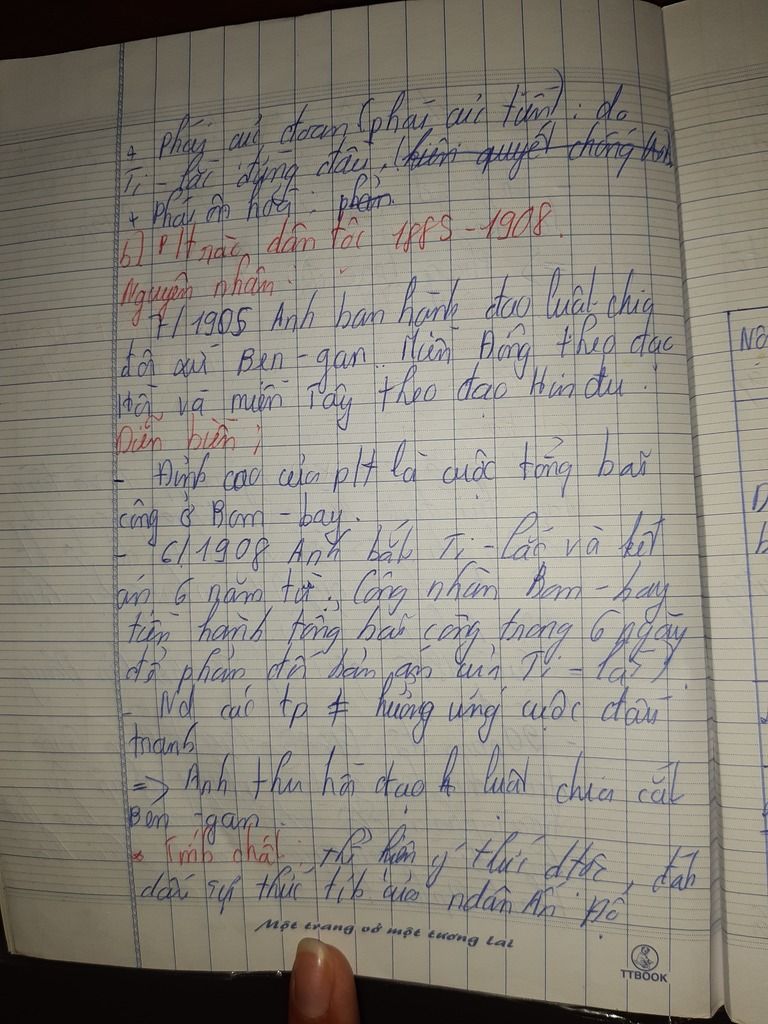 + Phái cực đoan (phái cực tiến) : do
Ti-lắc đứng đầu, (kiên quyết chống Anh)
+ Phái ôn hoà : phản
b) Pt rào dân tộc 1885-1908.
Nguyên nhân :
7/1905 Anh ban hành đạo luật chia
đôi xứ Ben-gan. Miền Đông theo đạo
Hồi và miền Tây theo đạo Hin đu.
Diễn biến ;
- Đỉnh cao của pt là cuộc tổng bãi
công ở Bom-bay.
- 6/1908 Anh bắt Ti-lắc và kết
án 6 năm tù. Công nhân Bom-bay
tiến hành tổng bãi công trong 6 ngày
để phản đối bản án của Ti-lắc).
- Nd các tp ≠ hưởng ứng cuộc đấu
tranh
=> Anh thu hồi đạo luật chia cắt
Ben-gan.
* Tính chất : thể hiện ý thức dtộc, đánh
dấu sự thức tỉnh của ndân Ấn Độ
Một trang vở một tương lai
TTBOOK
Nô
D
b